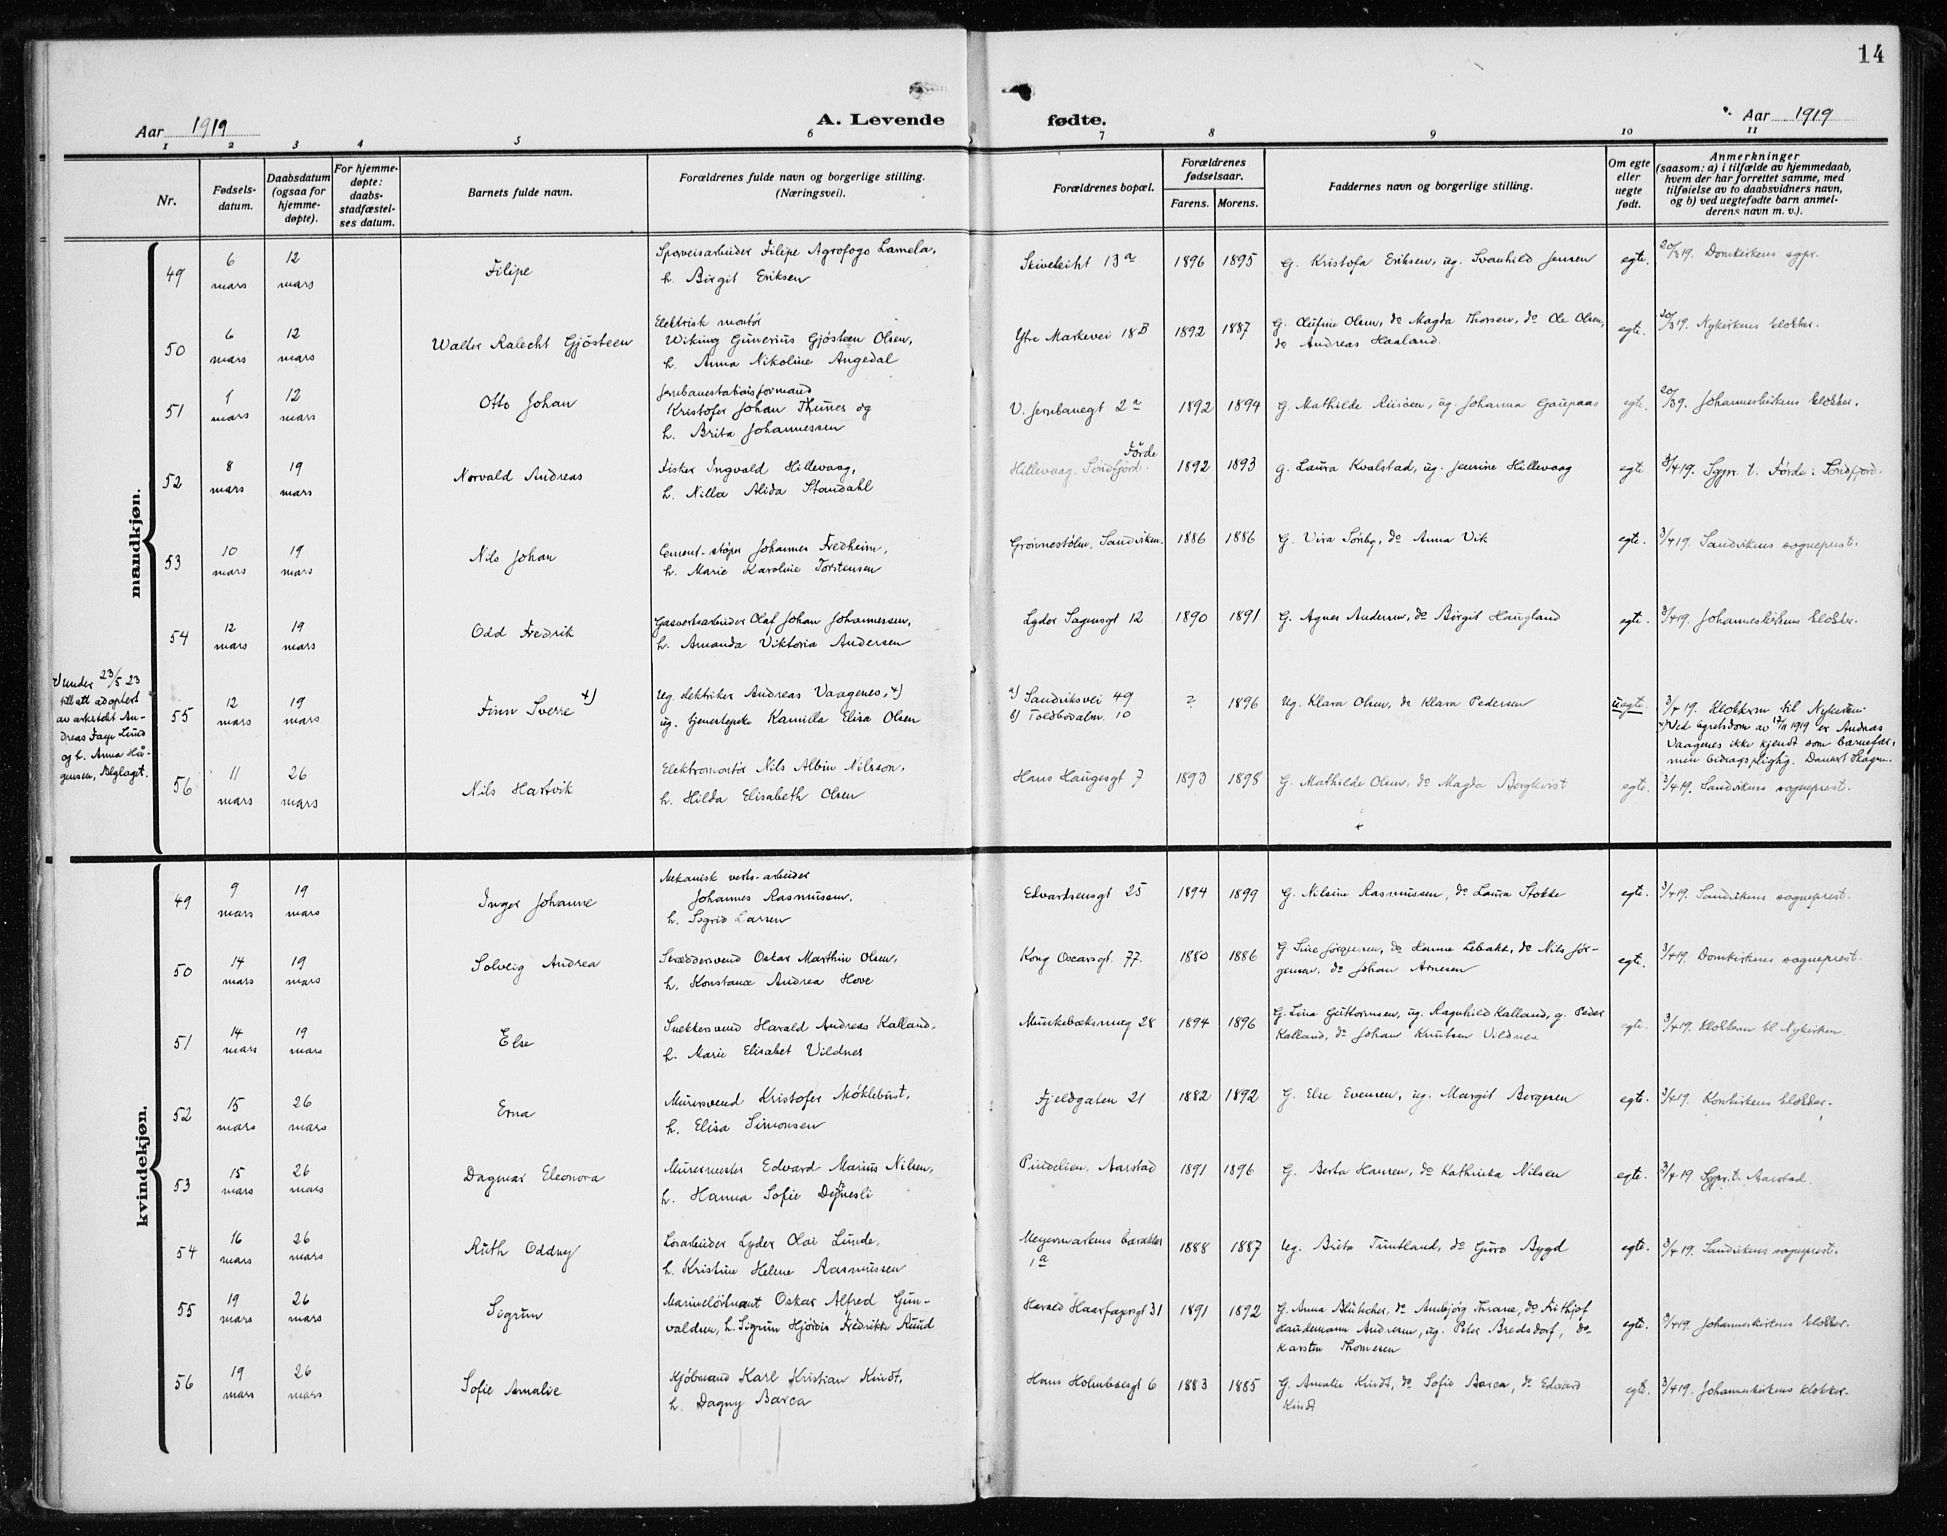 14
Aar 1919
A. Levende fødte.
Aar 1919
1 2 3 4 5 6 7 8 9 10 11
Nr.
Fødsels-
datum.
Daabsdatum
(ogsaa for
hjemme-
døpte).
For hjemme-
døpte:
daabs-
stadfæstel-
ses datum.
Barnets fulde navn.
Forældrenes fulde navn og borgerlige stilling.
(Næringsvei).
Forældrenes bopæl.
Forældrenes
fødselsaar.
Farens. Morens.
Faddernes navn og borgerlige stilling.
Om egte
eller
uegte
født.
Anmerkninger
(saasom: a) i tilfælde av hjemmedaab,
hvem der har forrettet samme, med
tilføielse av to daabsvidners navn,
og b) ved uegtefødte barn anmel-
derens navn m. v.).
mandkjøn.
49 6 mars 12 mars Filipe
Sporveisarbeider Filipe Agrofogo Lamela,
h. Birgit Eriksen
Skivebakt 13a 1896 1895 G. Kristofa Eriksen, ug. Svanhild Jensen egte. 20/3 19. Domkirkens sgpr.
50 6 mars 12 mars Walter Ralecht Gjösteen
Elektrisk montör
Wiking Gunerius Gjösteen Olsen,
h. Anna Nikoline Angedal
Ytre Markevei 18B 1892 1887 G. Olufine Olsen, do Magda Thorsen, do Ole Olsen,
do Andreas Haaland. egte. 20/3 19. Nykirkens klokker.
51 1 mars 12 mars Otto Johan
Jernbanestationsformand
Kristofer Johan Thunes og
h. Brita Johannessen
V. Jernbanegt 2a 1892 1894 G. Mathilde Riisöen, ug. Johanna Gaupaas egte. 20/3 19. Johanneskirkens klokker.
52 8 mars 19 mars Norvald Andreas
Fisker Ingvald Hillevaag,
h. Nilla Alida Standahl
Förde
Hillevaag. Söndfjord. 1892 1893 G. Laura Kvalstad, ug. Jenine Hillevaag egte 3/4 19. Sgpr. t. Førde i Söndfjord.
53 10 mars 19 mars Nils Johan
Cement-støper Johannes Fredheim,
h. Marie Karoline Torstensen
Grønnestölen, Sandviken. 1886 1886 G. Vira Sönby, do Anna Vik egte. 3/4 19. Sandvikens sogneprest.
54 12 mars 19 mars Odd Fredrik
Gasverksarbeider Olaf Johan Johannessen,
h. Amanda Viktoria Andersen
Lyder Sagensgt 12 1890 1891 G. Agnes Andersen, do Birgit Haugland egte. 3/4 19. Johanneskirkens klokker.
+) Under 23/5 23
till att adoptert
av arkitekt An-
dreas Faye Lund
og h. Anna Haa-
gensen,
55 12 mars 19 mars Finn Sverre +)
Ug. elektriker Andreas Vaagenes, +)
ug. tjenestepike Kamilla Elisa Olsen
a) Sandviksvei 49
b) Toldbodalm. 10
? 1896 Ug. Klara Olsen, do Klara Pedersen uegte. 3/4 19. Klokkeren til Nykirken.
+) Ved byretsdom av 17/11 1919 er Andreas
Vaagenes ikke kjendt som barnefar,
men bidragspligtig. Danert Skagen.
56 11 mars 26 mars Nils Hartvik
Elektromontör Nils Albin Nilsson,
h. Hilda Elisabeth Olsen
Hans Haugesgt 7 1893 1898 G. Mathilde Olsen, do Magda Bergkvist egte. 3/4 19. Sandvikens sogneprest.
kvindekjøn.
49 9 mars 19 mars Inger Johanne
Mekanisk verks-arbeider
Johannes Rasmussen,
h. Sigrid Larsen
Edvardsensgt 25 1894 1899 G. Nilsine Rasmussen, do Laura Stokke egte. 3/4 19. Sandvikens sogneprest.
50 14 mars 19 mars Solveig Andrea
Skræddersvend Oskar Marthin Olsen,
h. Konstanse Andrea Hove
Kong Oscarsgt. 77. 1880 1886 G. Sine Jörgensen, do Hanna Lebakt, do Nils Jör-
gensen, do Johan Arnesen egte. 3/4 19. Domkirkens sogneprest.
51 14 mars 19 mars Else
Snekkersvend Harald Andreas Kalland,
h. Marie Elisabet Vildnes
Munkebæksmug 28 1894 1896 G. Lina Guttormsen, ug. Ragnhild Kalland, g. Peder
Kalland, do Johan Knutsen Vildnes egte. 3/4 19. Klokkeren til Nykirken.
52 15 mars 26 mars Erna
Murersvend Kristofer Møklebust,
h. Elisa Simonsen
Fjeldgaten 21 1882 1892 G. Else Evensen, ug. Margit Bergesen egte. 3/4 19. Korskirkens klokker.
53 15 mars 26 mars Dagmar Eleonora
Murermester Edvard Marius Nilsen,
h. Hanna Sofie Dynesli
Pindelien, Aarstad 1891 1896 G. Berta Hansen, do Kathinka Nilsen egte. 3/4 19. Sgpr. t. Aarstad.
54 16 mars 26 mars Ruth Oddny
Losarbeider Lyder Olai Lunde,
h. Kristine Helene Rasmussen
Meyermarkens barakker
1a 1888 1887 Ug. Brita Tuntland, do Guro Bygd egte. 3/4 19. Sandvikens sogneprest.
55 19 mars 26 mars Sigrun
Marinelöitnant Oskar Alfred Gun-
valdsen, h. Sigrun Hjördis Fredrikke Ruud
Harald Haarfagersgt 31 1891 1892 G. Anna Blütcher, do Ambjörg Thrane, do Frithjof
Lundemann Andresen, ug. Peter Bredsdorf, do
Karsten Thomesen egte. 9/4 19. Johanneskirkens klokker.
56 19 mars 26 mars Sofie Amalie
Kjöbmand Karl Kristian Kindt,
h. Dagny Barca
Hans Holmboesgt 6 1883 1885 G. Amalie Kindt, do Sofie Barca, do Edvard
Kindt egte. 3/4 19. Johanneskirkens klokker.